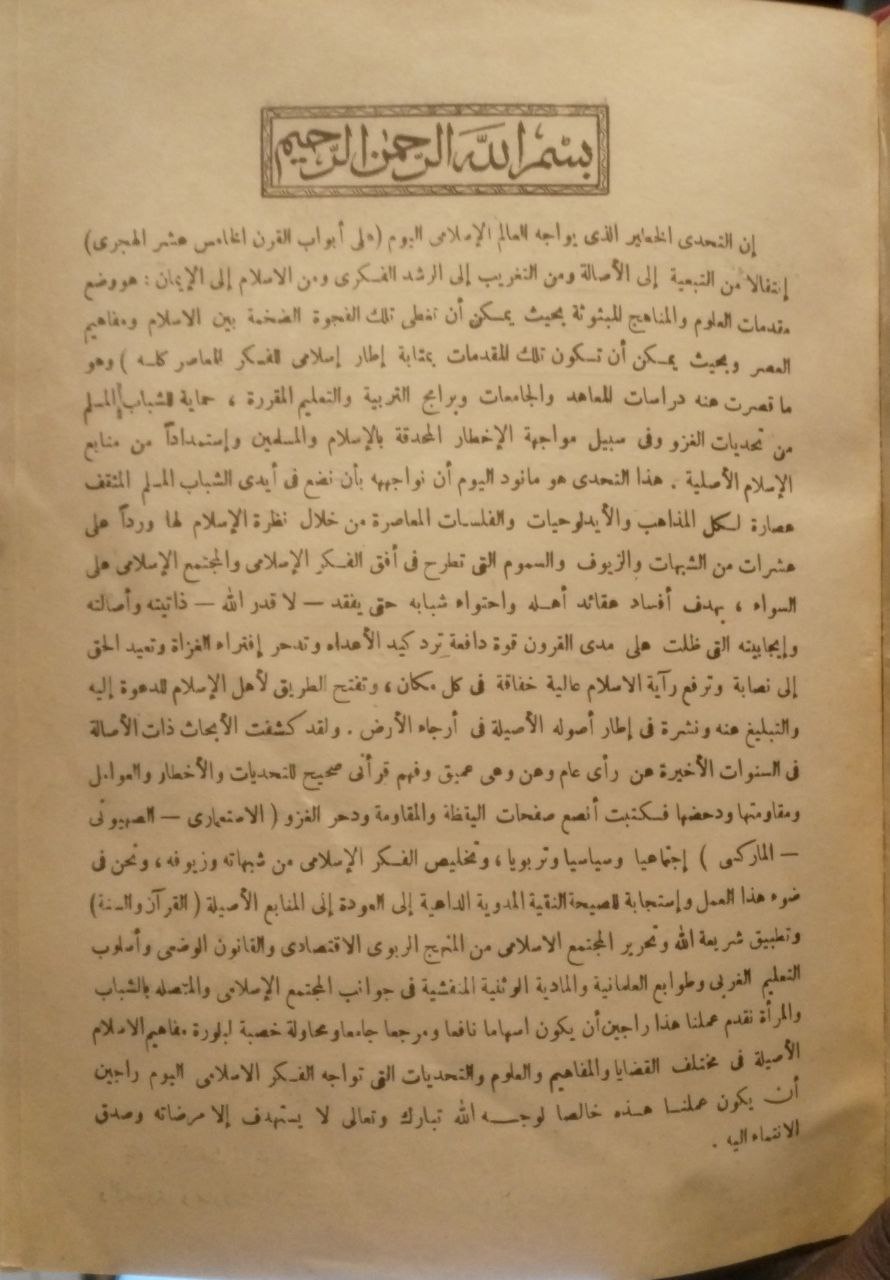 بسم الله الرحمن الرحيم
إن التحدى الخطير الذى يواجه العالم الإسلامى اليوم (على أبواب القرن الخامس عشر الهجرى)
إنتقالا من التبعية إلى الأصالة ومن التغريب إلى الرشد الفكرى ومن الاسلام إلى الإيمان : هو وضع
مقدمات العلوم والمناهج المبثوثة بحيث يمكن أن تغطى تلك الفجوة الضخمة بين الاسلام ومفاهيم
العصر وبحيث يمكن أن تكون تلك المقدمات بمثابة إطار إسلامى للفكر المعاصر كله ) وهو
ما قصرت عنه دراسات المعاهد والجامعات وبرامج التربية والتعليم المقررة ، حماية للشباب المسلم
من تحديات الغزو وفى سبيل مواجهة الإخطار المحدقة بالإسلام والمسلمين وإستمداداً من منابع
الإسلام الأصلية . هذا التحدى هو مانود اليوم أن نواجهه بأن نضع فى أيدى الشباب المسلم المثقف
عصارة لكل المذاهب والأيدلوجيات والفلسات المعاصرة من خلال نظرة الإسلام لها ورداً على
عشرات من الشبهات والزيوف والسموم التى تطرح فى أفق الفكر الإسلامى والمجتمع الإسلامى على
السواء ، بهدف أفساد عقائد أهله واحتواء شبابه حتى يفقد — لا قدر الله — ذاتيته وأصالته
وإيجابيته التى ظلت على مدى القرون قوة دافعة ترد كيد الأعداء وتدحر إفتراء الغزاة وتعيد الحق
إلى نصابة وترفع رآية الاسلام عالية خفاقة فى كل مكان ، وتفتح الطريق لأهل الإسلام للدعوة إليه
والتبليغ عنه ونشرة فى إطار أصوله الأصيلة فى أرجاء الأرض . ولقد كشفت الأبحاث ذات الأصالة
فى السنوات الأخيرة عن رأى عام وعن وعى عميق وفهم قرآنى صحيح للتحديات والأخطار والعوامل
ومقاومتها ودحضها فكتبت أنصع صفحات اليقظة والمقاومة ودحر الغزو ( الاستعمارى — الصهيونى
— الماركسى ) إجتماعيا وسياسيا وتربويا ، وتخليص الفكر الإسلامى من شبهاته وزيوفه ، ونحن فى
ضوء هذا العمل وإستجابة للصيحة النقية المدوية الداعية إلى العودة إلى المنابع الأصيلة ( القرآن والسنة )
وتطبيق شريعة الله وتحرير المجتمع الاسلامى من المنهج الربوى الاقتصادى والقانون الوضعى وأسلوب
التعليم الغربى وطوابع العلمانية والمادية الوثنية المتفشية فى جوانب المجتمع الإسلامى والمتصله بالشباب
والمرأة نقدم عملنا هذا راجين أن يكون اسهاما نافعا ومرجعا جامعا ومحاولة خصبة لبلورة مفاهيم الاسلام
الأصيلة فى مختلف القضايا والمفاهيم والعلوم والتحديات التى تواجه الفكر الاسلامى اليوم راجين
أن يكون عملنا هذه خالصا لوجه الله تبارك وتعالى لا يستهدف إلا مرضاته وصدق
الانتماء اليه .